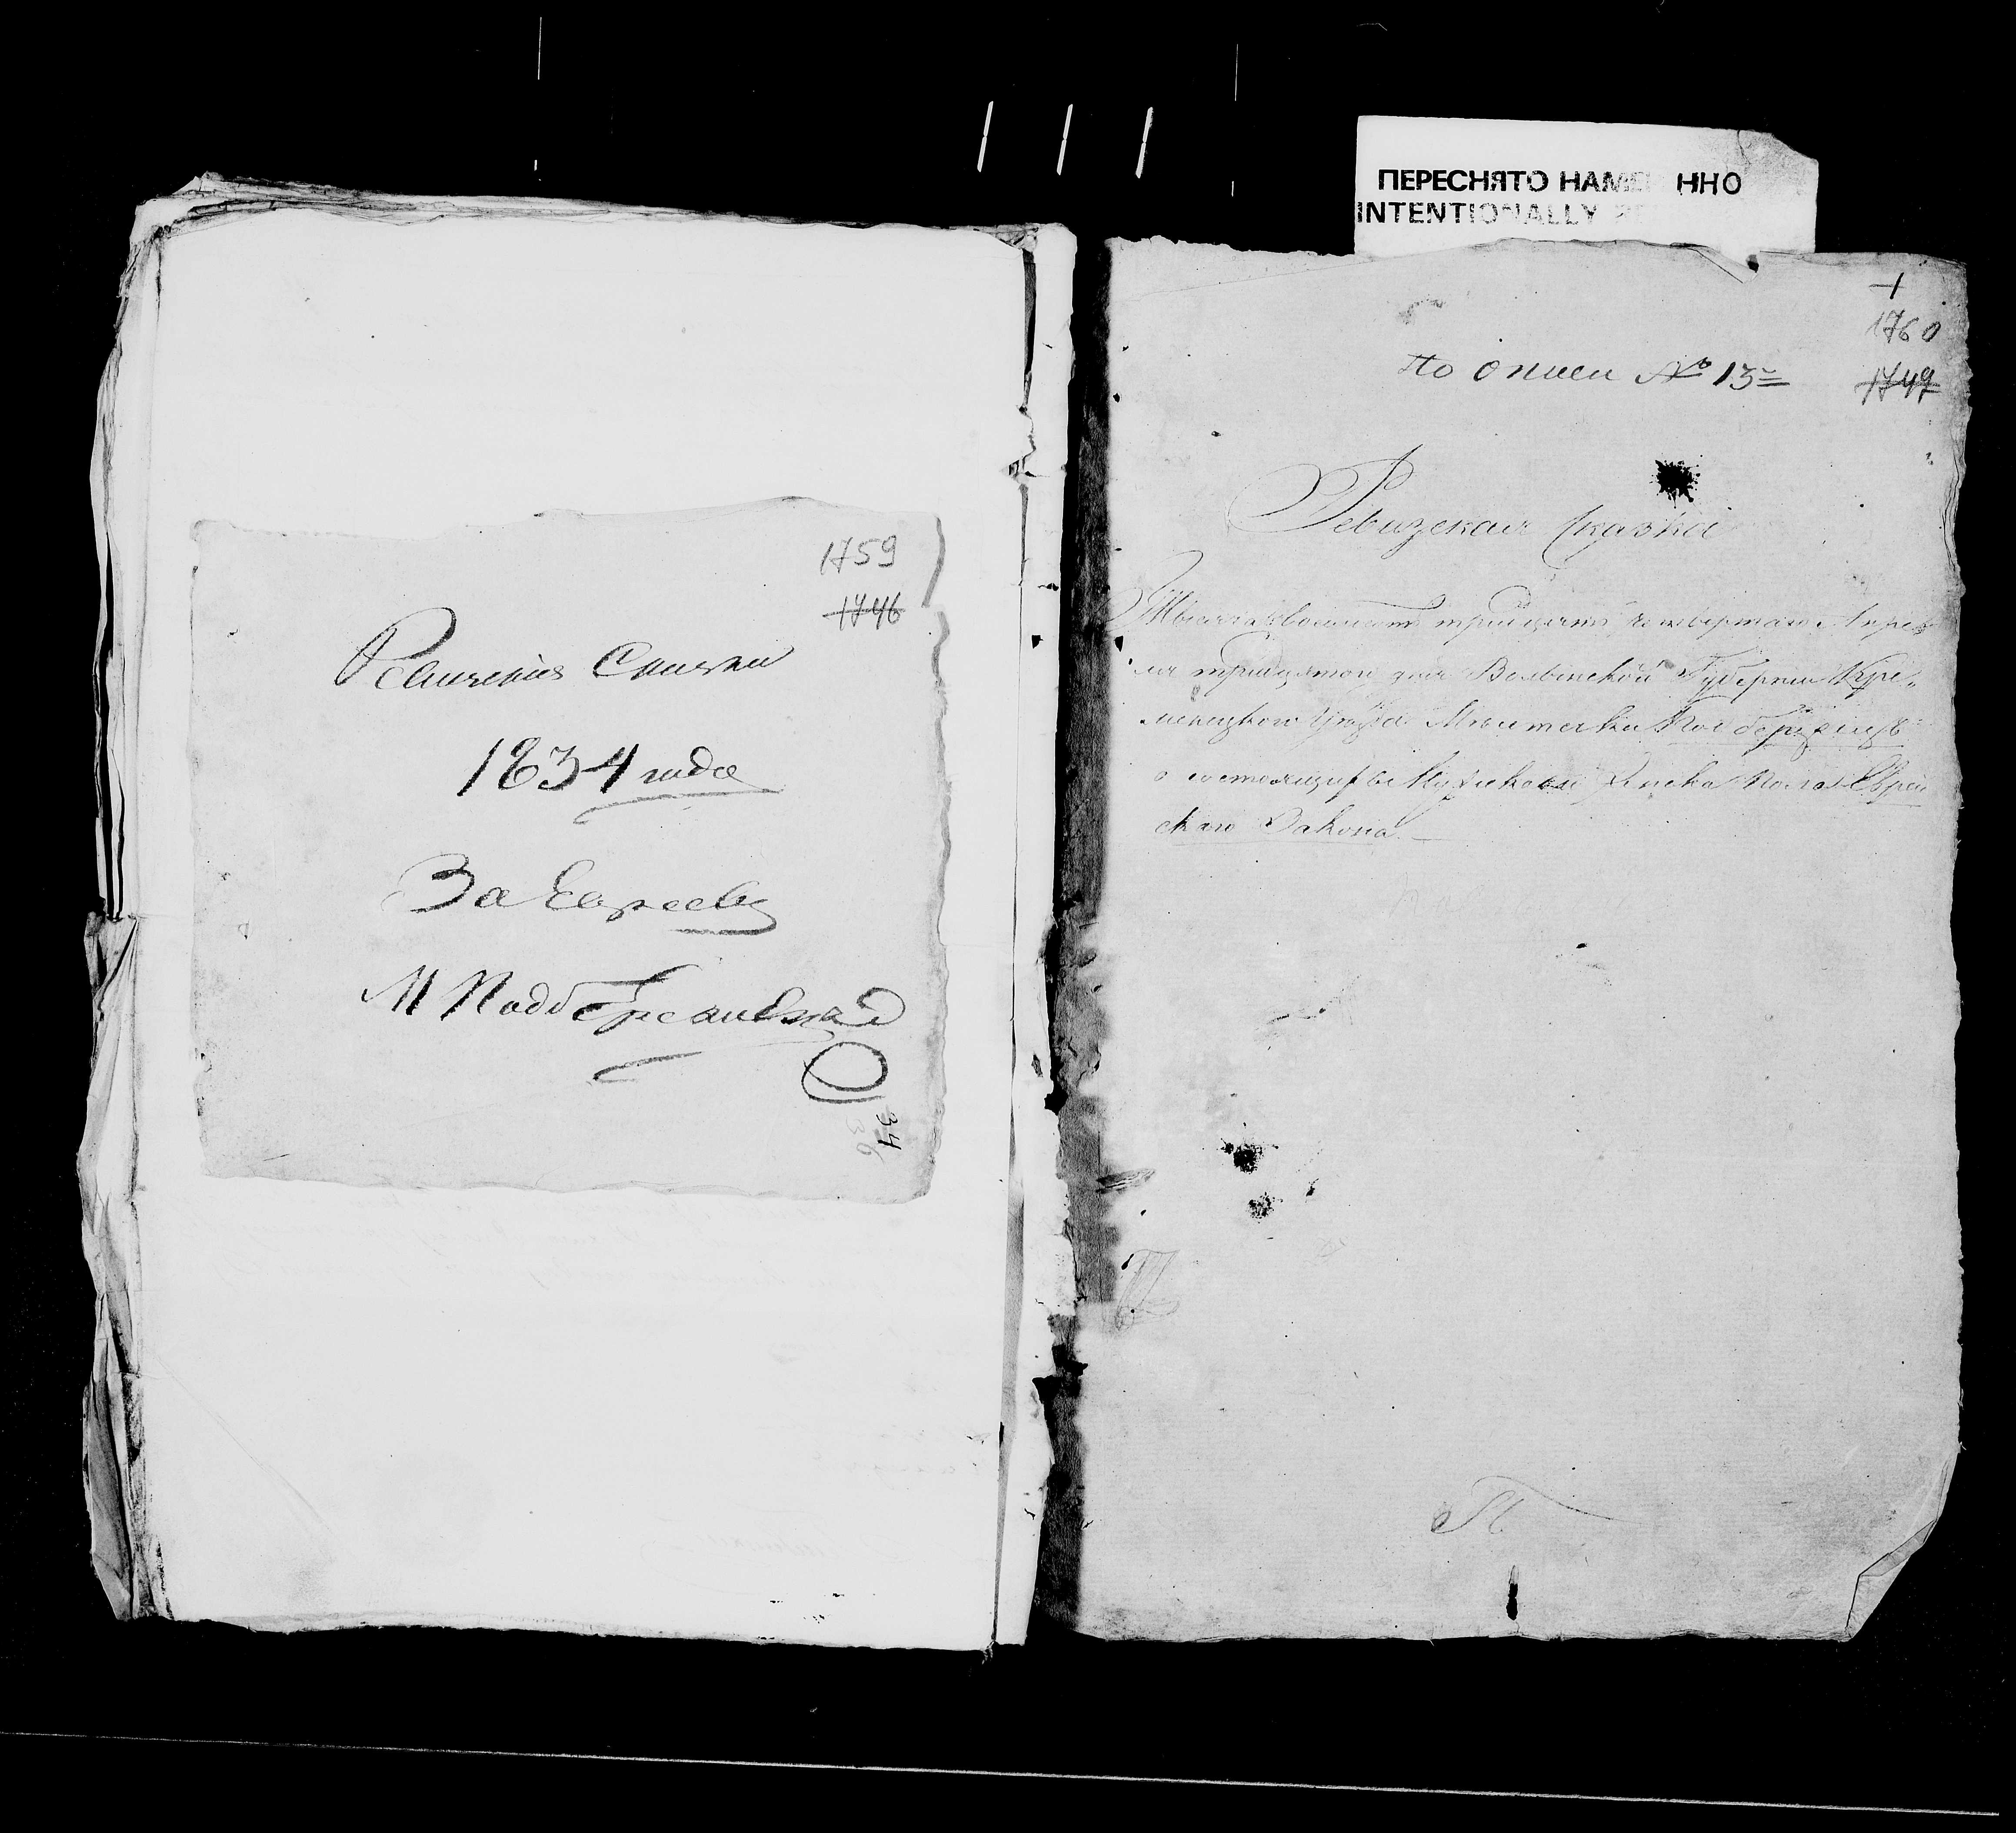 1759
1746
1834 года
За Евреевъ
34
36
ПЕРЕСНЯТО НАМЕ ННО
INTENTIONALLY
1
1760
1747
По описи № 13
Ревизская сказка
Тысяча восемьсотъ тридцять четвертаго Апре
ля тридцятого дня Волынской Губернии Кре„
менецкого уѣзда Мѣстечка Подберезецъ
о состоящихъ Мужеска и женска пола Еврей
скаго Закона. —